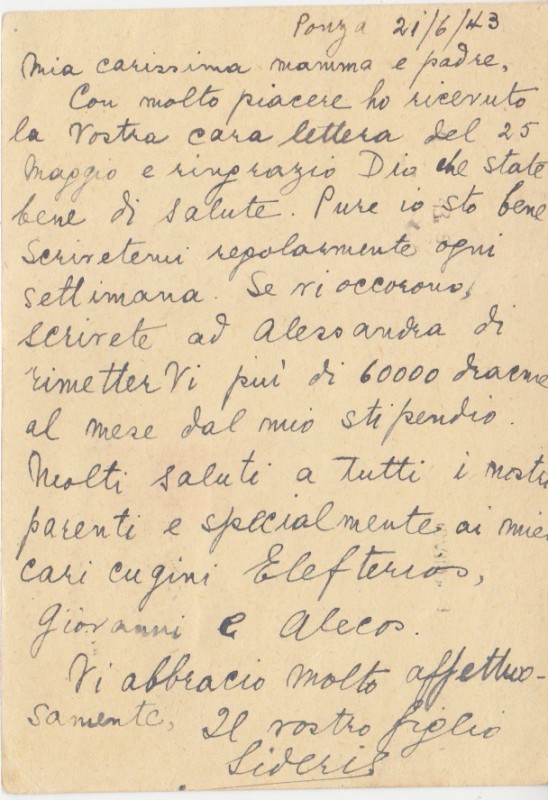 Ponza 21/6/43
Mia carissima mamma e padre,
Con molto piacere ho ricevuto
la Vostra cara lettera del 25
Maggio e ringrazio Dio che state
bene di salute. Pure io sto bene
Scrivetemi regolarmente ogni
settimana. Se vi occorono,
scrivete ad Alessandra di
rimetterVi più di 60000 dracme
al mese dal mio stipendio.
Molti saluti a tutti i nostri
parenti e specialmente ai miei
cari cugini Elefterios,
Giovanni e Alecos.
Vi abbracio molto affettuo-
samente, Il vostro figlio
Sideris